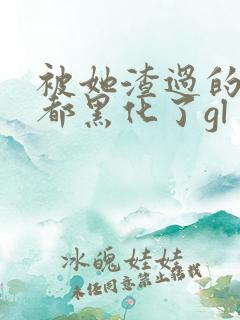 被她渣过的
都黑化了gl
冰魄娃娃
未经同意禁止转载